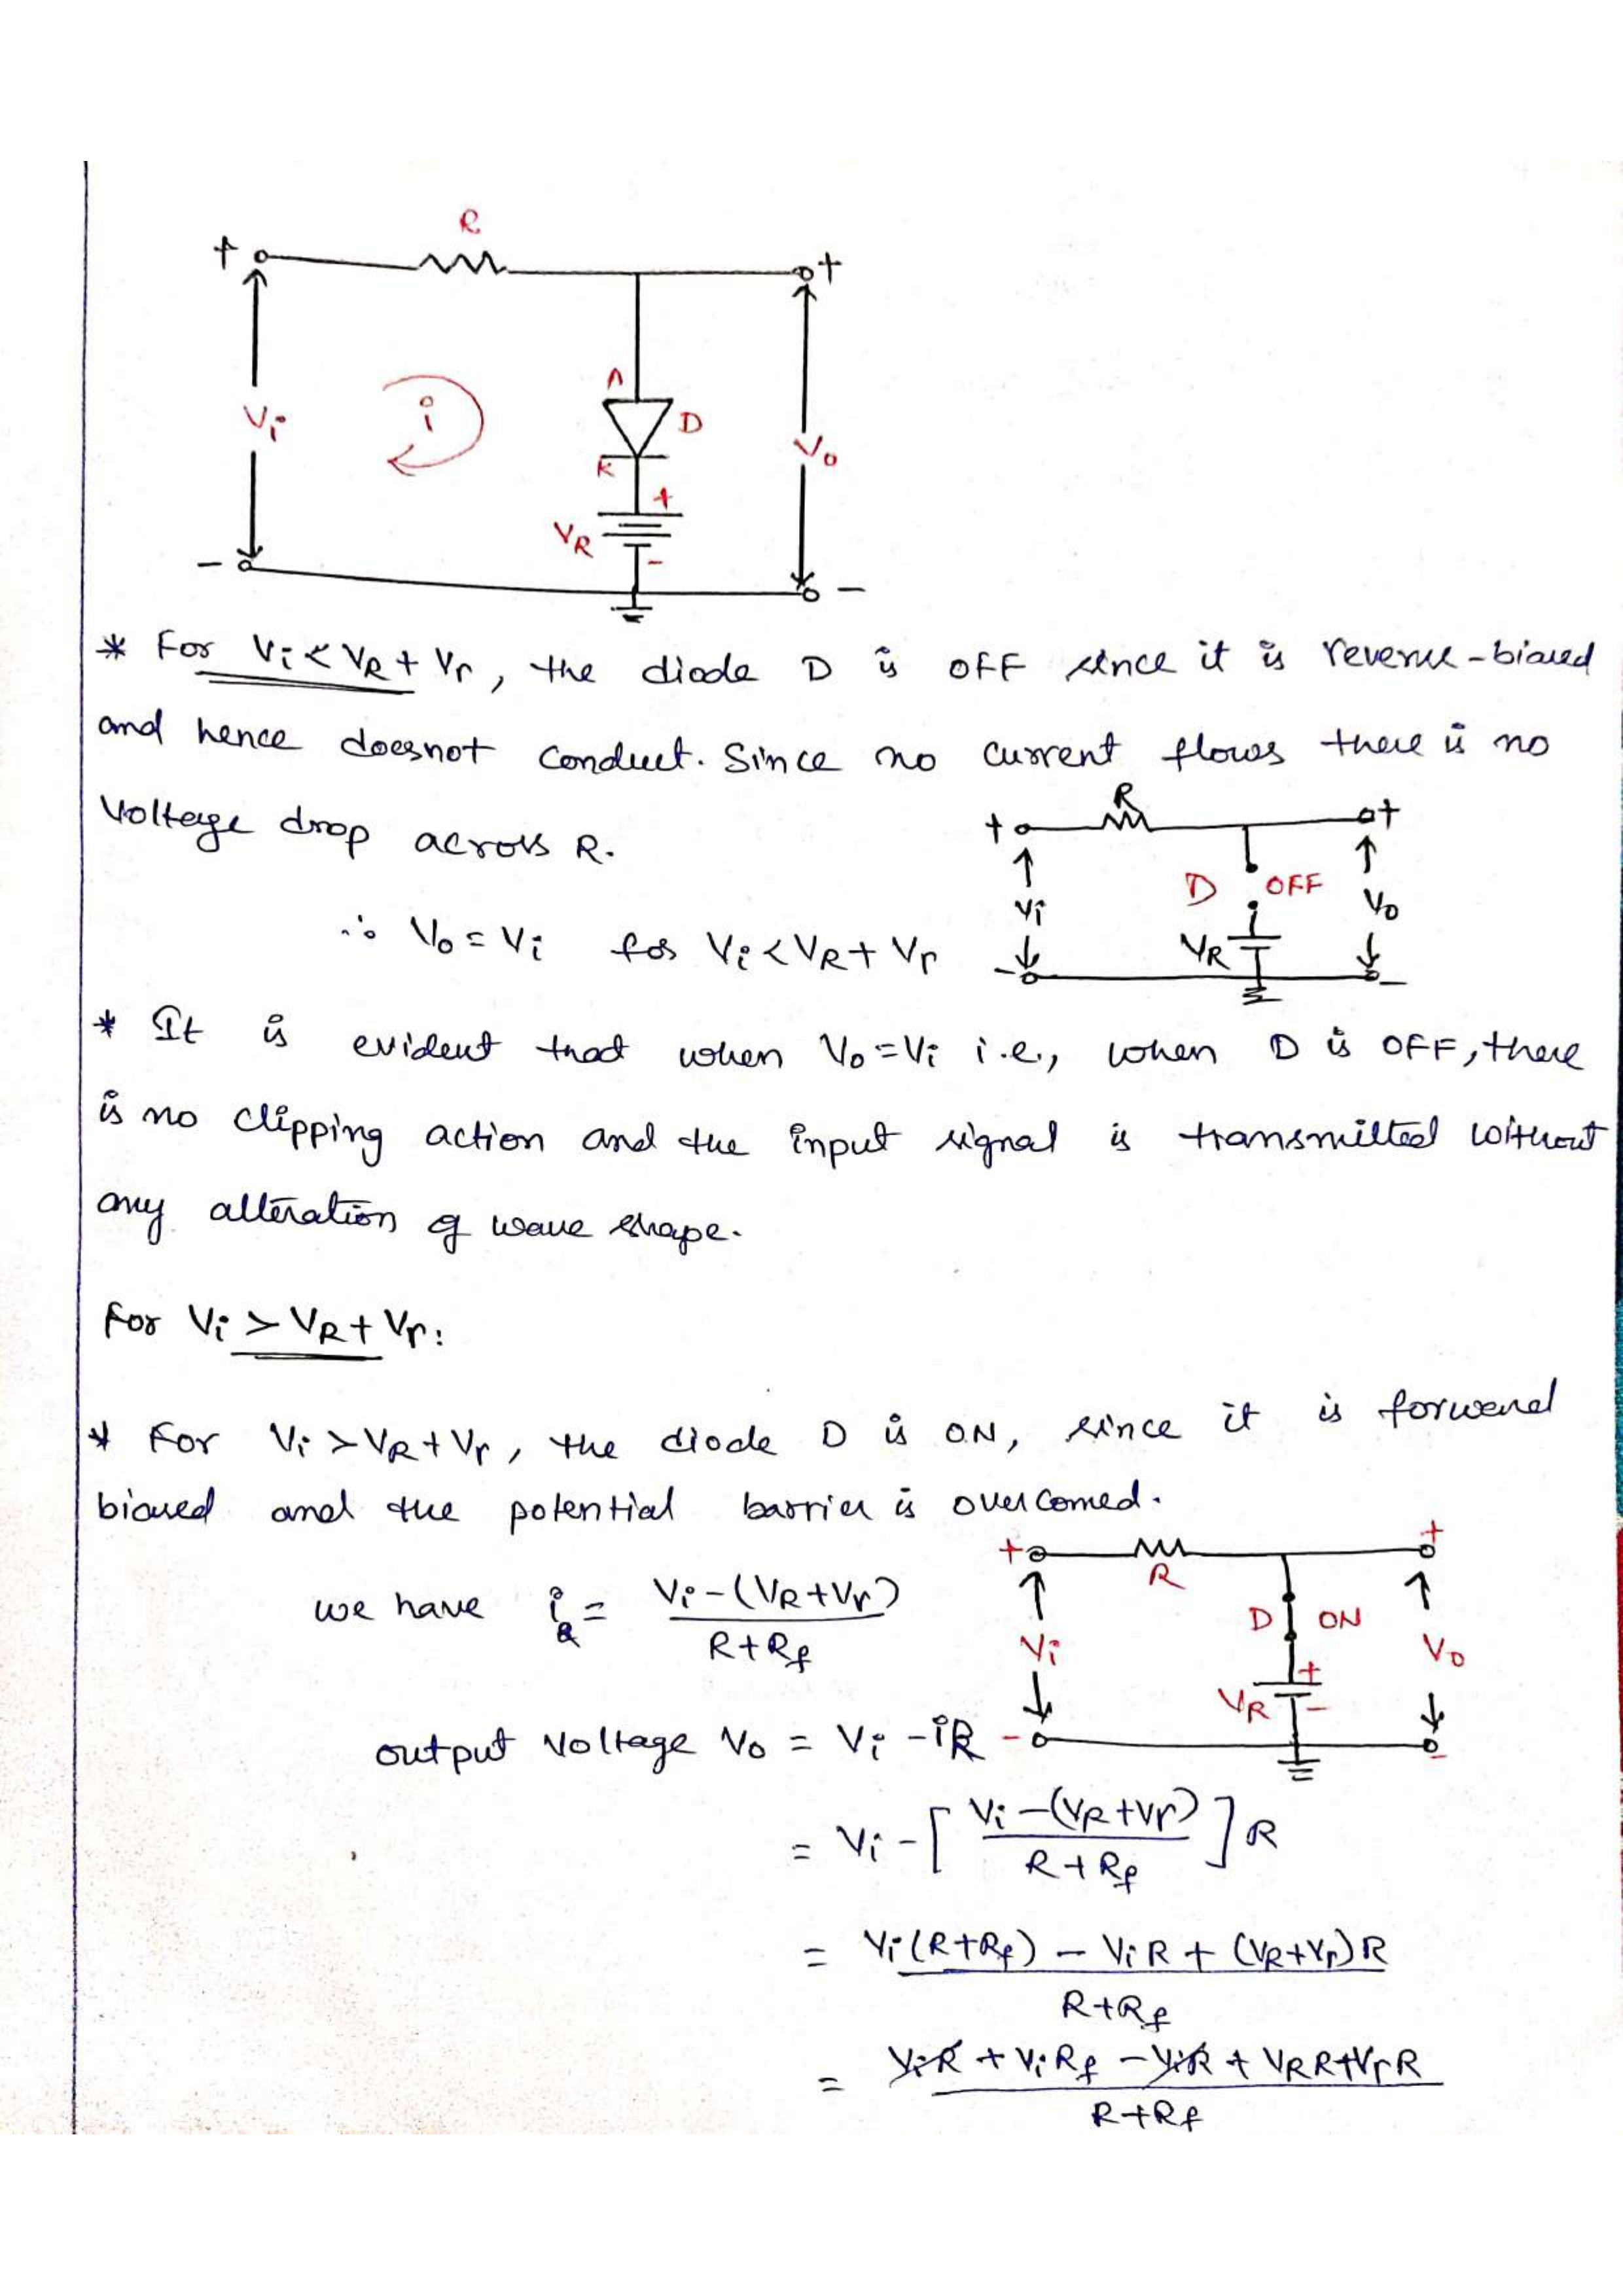 R
+ +
A
Vi i D
Vo
K
+
VR
-
- -
* For Vi < VR + Vr, the diode D is OFF since it is reverse-biased
and hence doesnot conduct. Since no current flows there is no
Voltage drop across R.
R
+ +
D OFF
Vi Vo
VR
- -
∴ Vo = Vi for Vi < VR + Vr
* It is evident that when Vo = Vi i.e., when D is OFF, there
is no clipping action and the input signal is transmitted without
any alteration of wave shape.
For Vi > VR + Vr:
* For Vi > VR + Vr, the diode D is ON, since it is forward
biased and the potential barrier is overcomed.
+ +
R
D ON
Vi Vo
+
VR
-
- -
we have i = Vi - (VR + Vr) / R + Rf
output voltage Vo = Vi - iR
= Vi - [ Vi - (VR + Vr) / R + Rf ] R
= Vi (R + Rf) - Vi R + (VR + Vr) R / R + Rf
= Vi R + Vi Rf - Vi R + VR R + Vr R / R + Rf